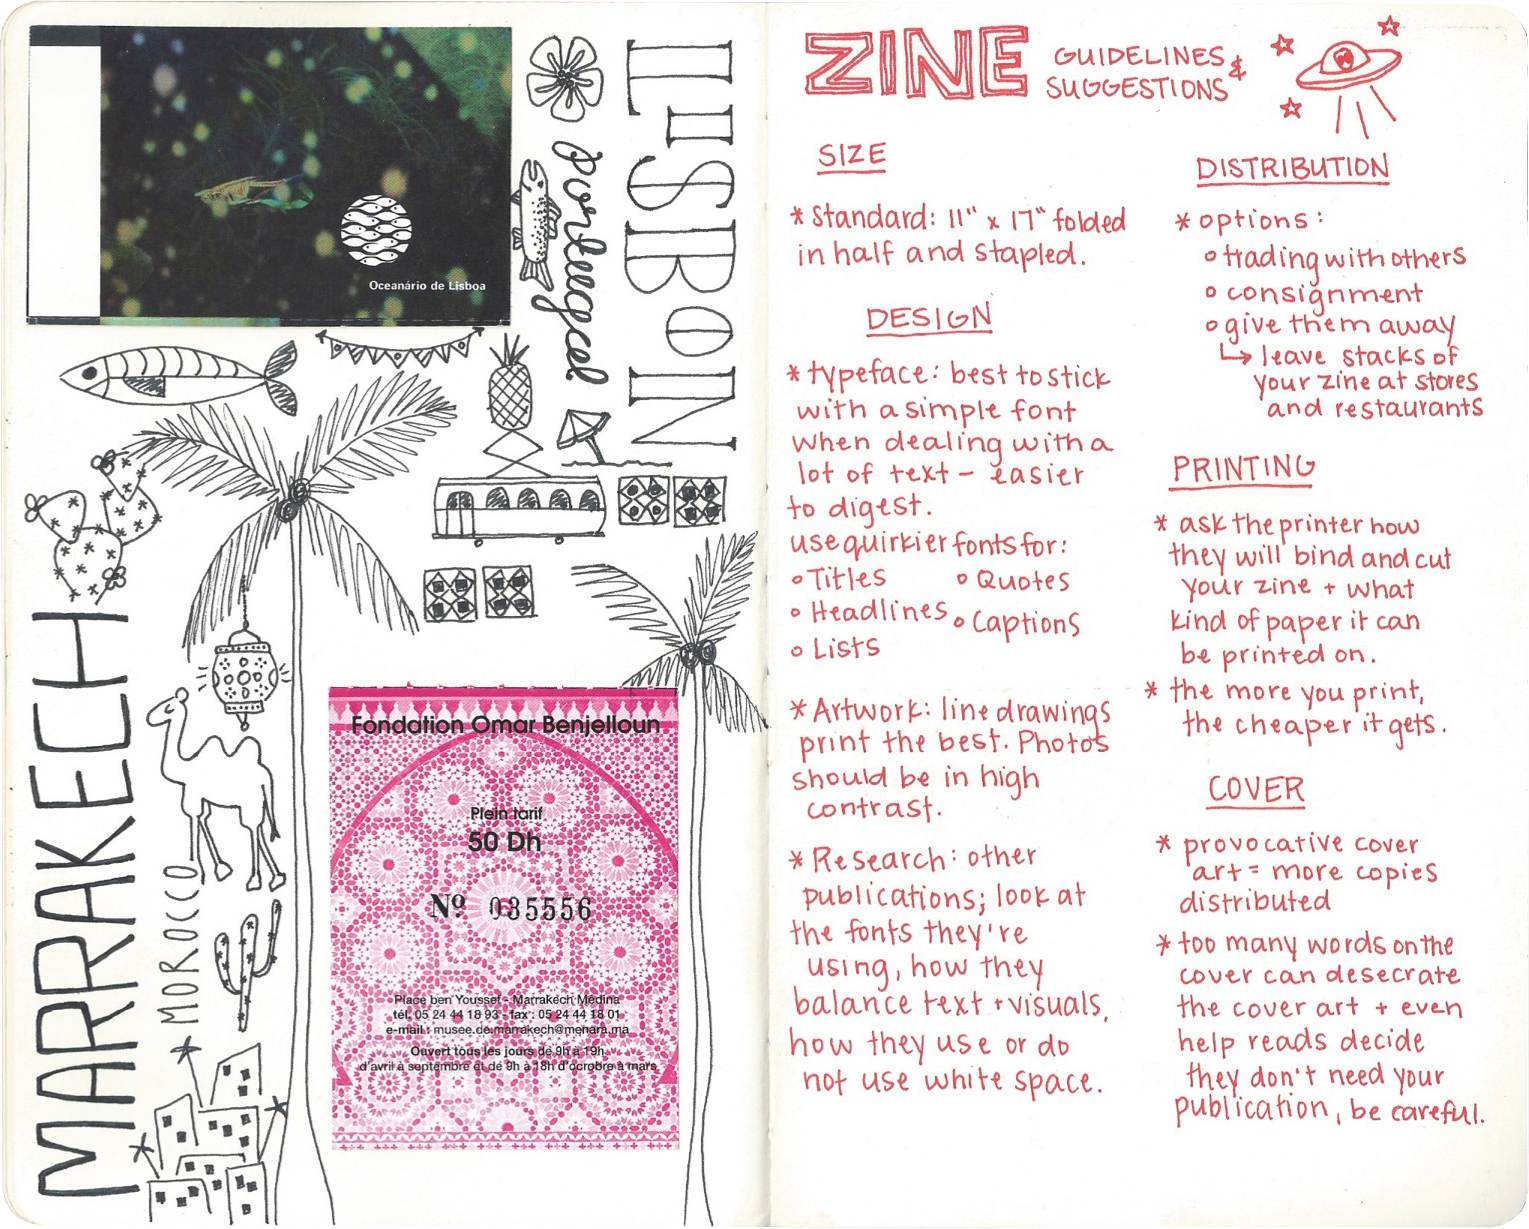 Oceanário de Lisboa
LISBON
portugal
MARRAKECH
MOROCCO
Fondation Omar Benjelloun
Plein tarif
50 Dh
Nº 035556
Place ben Youssef - Marrakech Medina
tél. 05 24 44 18 93 - fax : 05 24 44 18 01
e-mail : musee.de.marrakech@menara.ma
Ouvert tous les jours de 9h à 19h
d'avril à septembre et de 9h à 18h d'ocrobre à mars
ZINE GUIDELINES &
SUGGESTIONS
SIZE
* Standard: 11" x 17" folded
in half and stapled.
DESIGN
* typeface: best to stick
with a simple font
when dealing with a
lot of text – easier
to digest.
use quirkier fonts for:
o Titles o Quotes
o Headlines o Captions
o Lists
* Artwork: line drawings
print the best. Photos
should be in high
contrast.
* Research: other
publications; look at
the fonts they're
using, how they
balance text + visuals,
how they use or do
not use white space.
DISTRIBUTION
* options:
o trading with others
o consignment
o give them away
↳ leave stacks of
your zine at stores
and restaurants
PRINTING
* ask the printer how
they will bind and cut
your zine + what
kind of paper it can
be printed on.
* the more you print,
the cheaper it gets.
COVER
* provocative cover
art = more copies
distributed
* too many words on the
cover can desecrate
the cover art + even
help reads decide
they don't need your
publication, be careful.